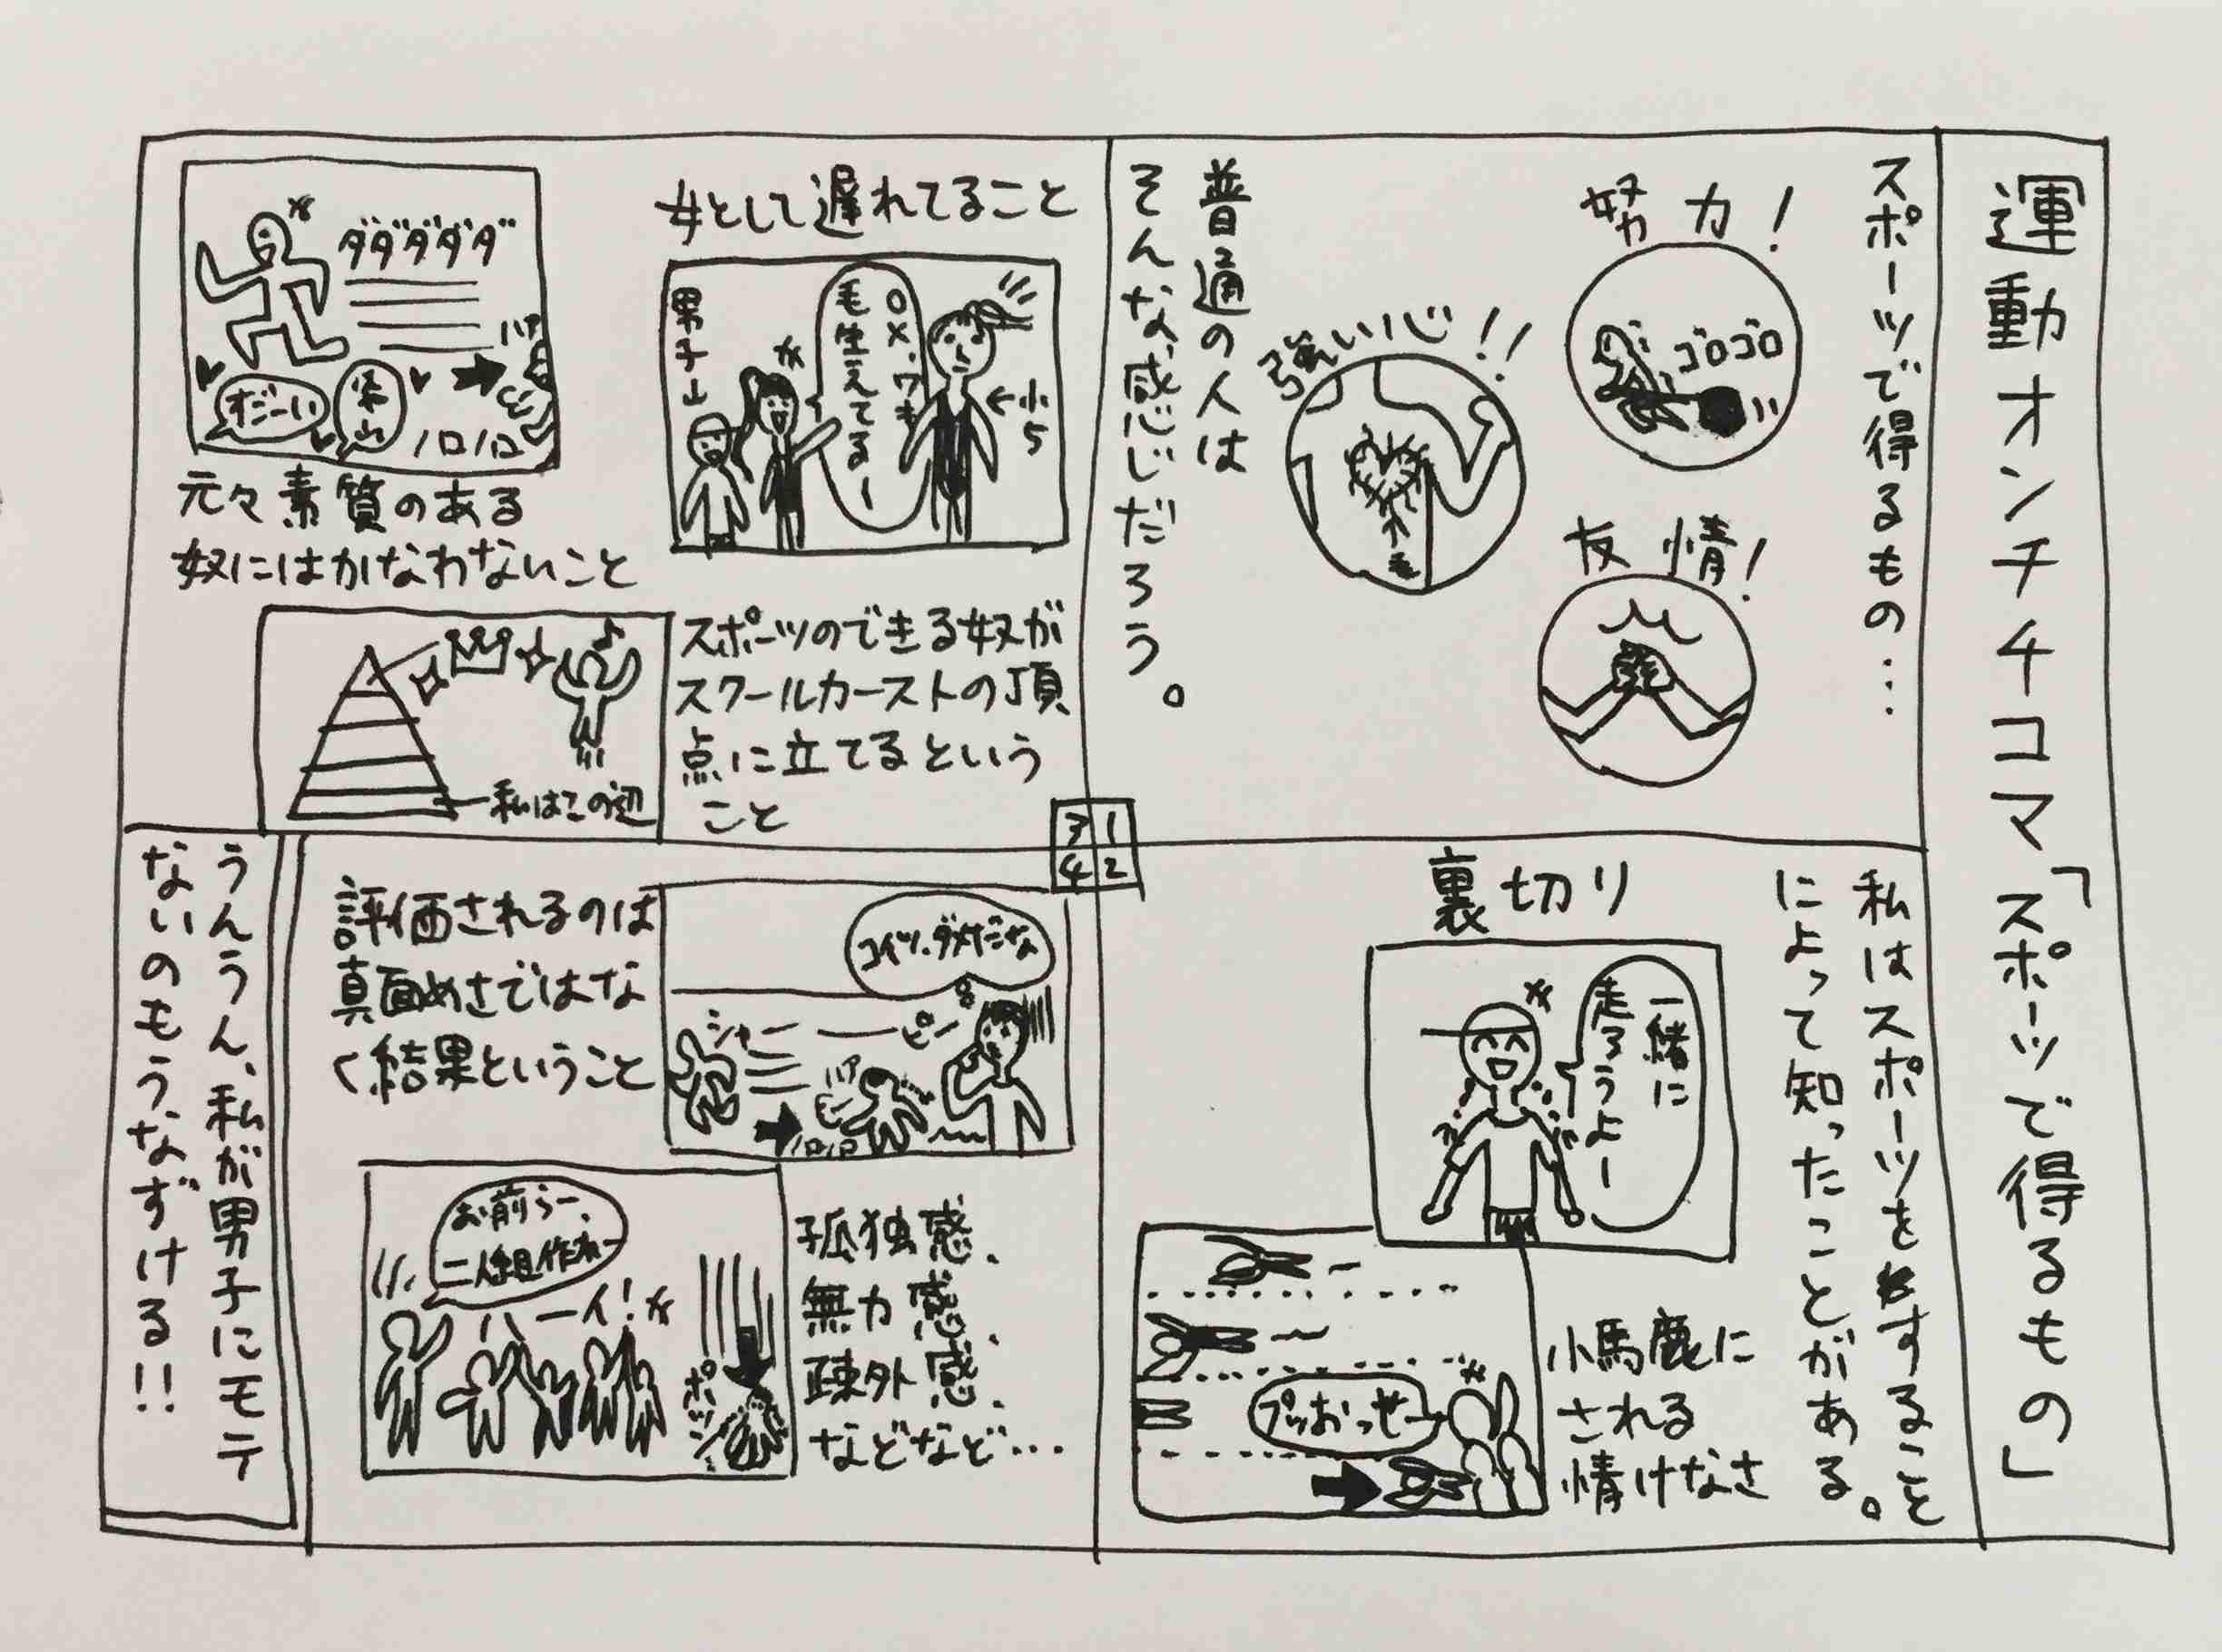 運動オンチ4コマ「スポーツで得るもの」
スポーツで得るもの…
努力!
ゴロゴロ
強い心!!
毛
友情!
普通の人は
そんな感じだろう。
私はスポーツをすること
によって知ったことがある。
裏切り
一緒に
走ろうよー
小馬鹿に
される
情けなさ
プッおっせー
女として遅れてること
小5
○×、ワキ
毛生えてるー
男子山
ダダダダダ
ハァ
だーい
ノロノロ
元々素質のある
奴にはかなわないこと
スポーツのできる奴が
スクールカーストの頂
点に立てるという
こと
私はこの辺
3 1
4 2
評価されるのは
真面めさではな
く結果ということ
コイツ、ダメだな
シャー
ピー
ハァ
ノロノロ
孤独感、
無力感、
疎外感、
などなど…
お前らー、
二人組作れー
ハーイ!
ポツン
うんうん、私が男子にモテ
ないのもうなずける!!